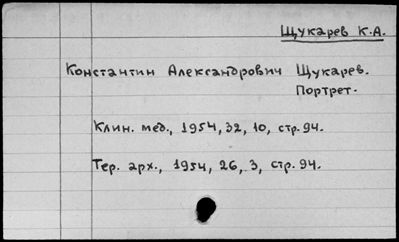 Щукарев К.А.
Константин Александрович Щукарев.
Портрет.
Клин. мед., 1954, 32, 10, стр. 94.
Тер. арх., 1954, 26, 3, стр. 94.